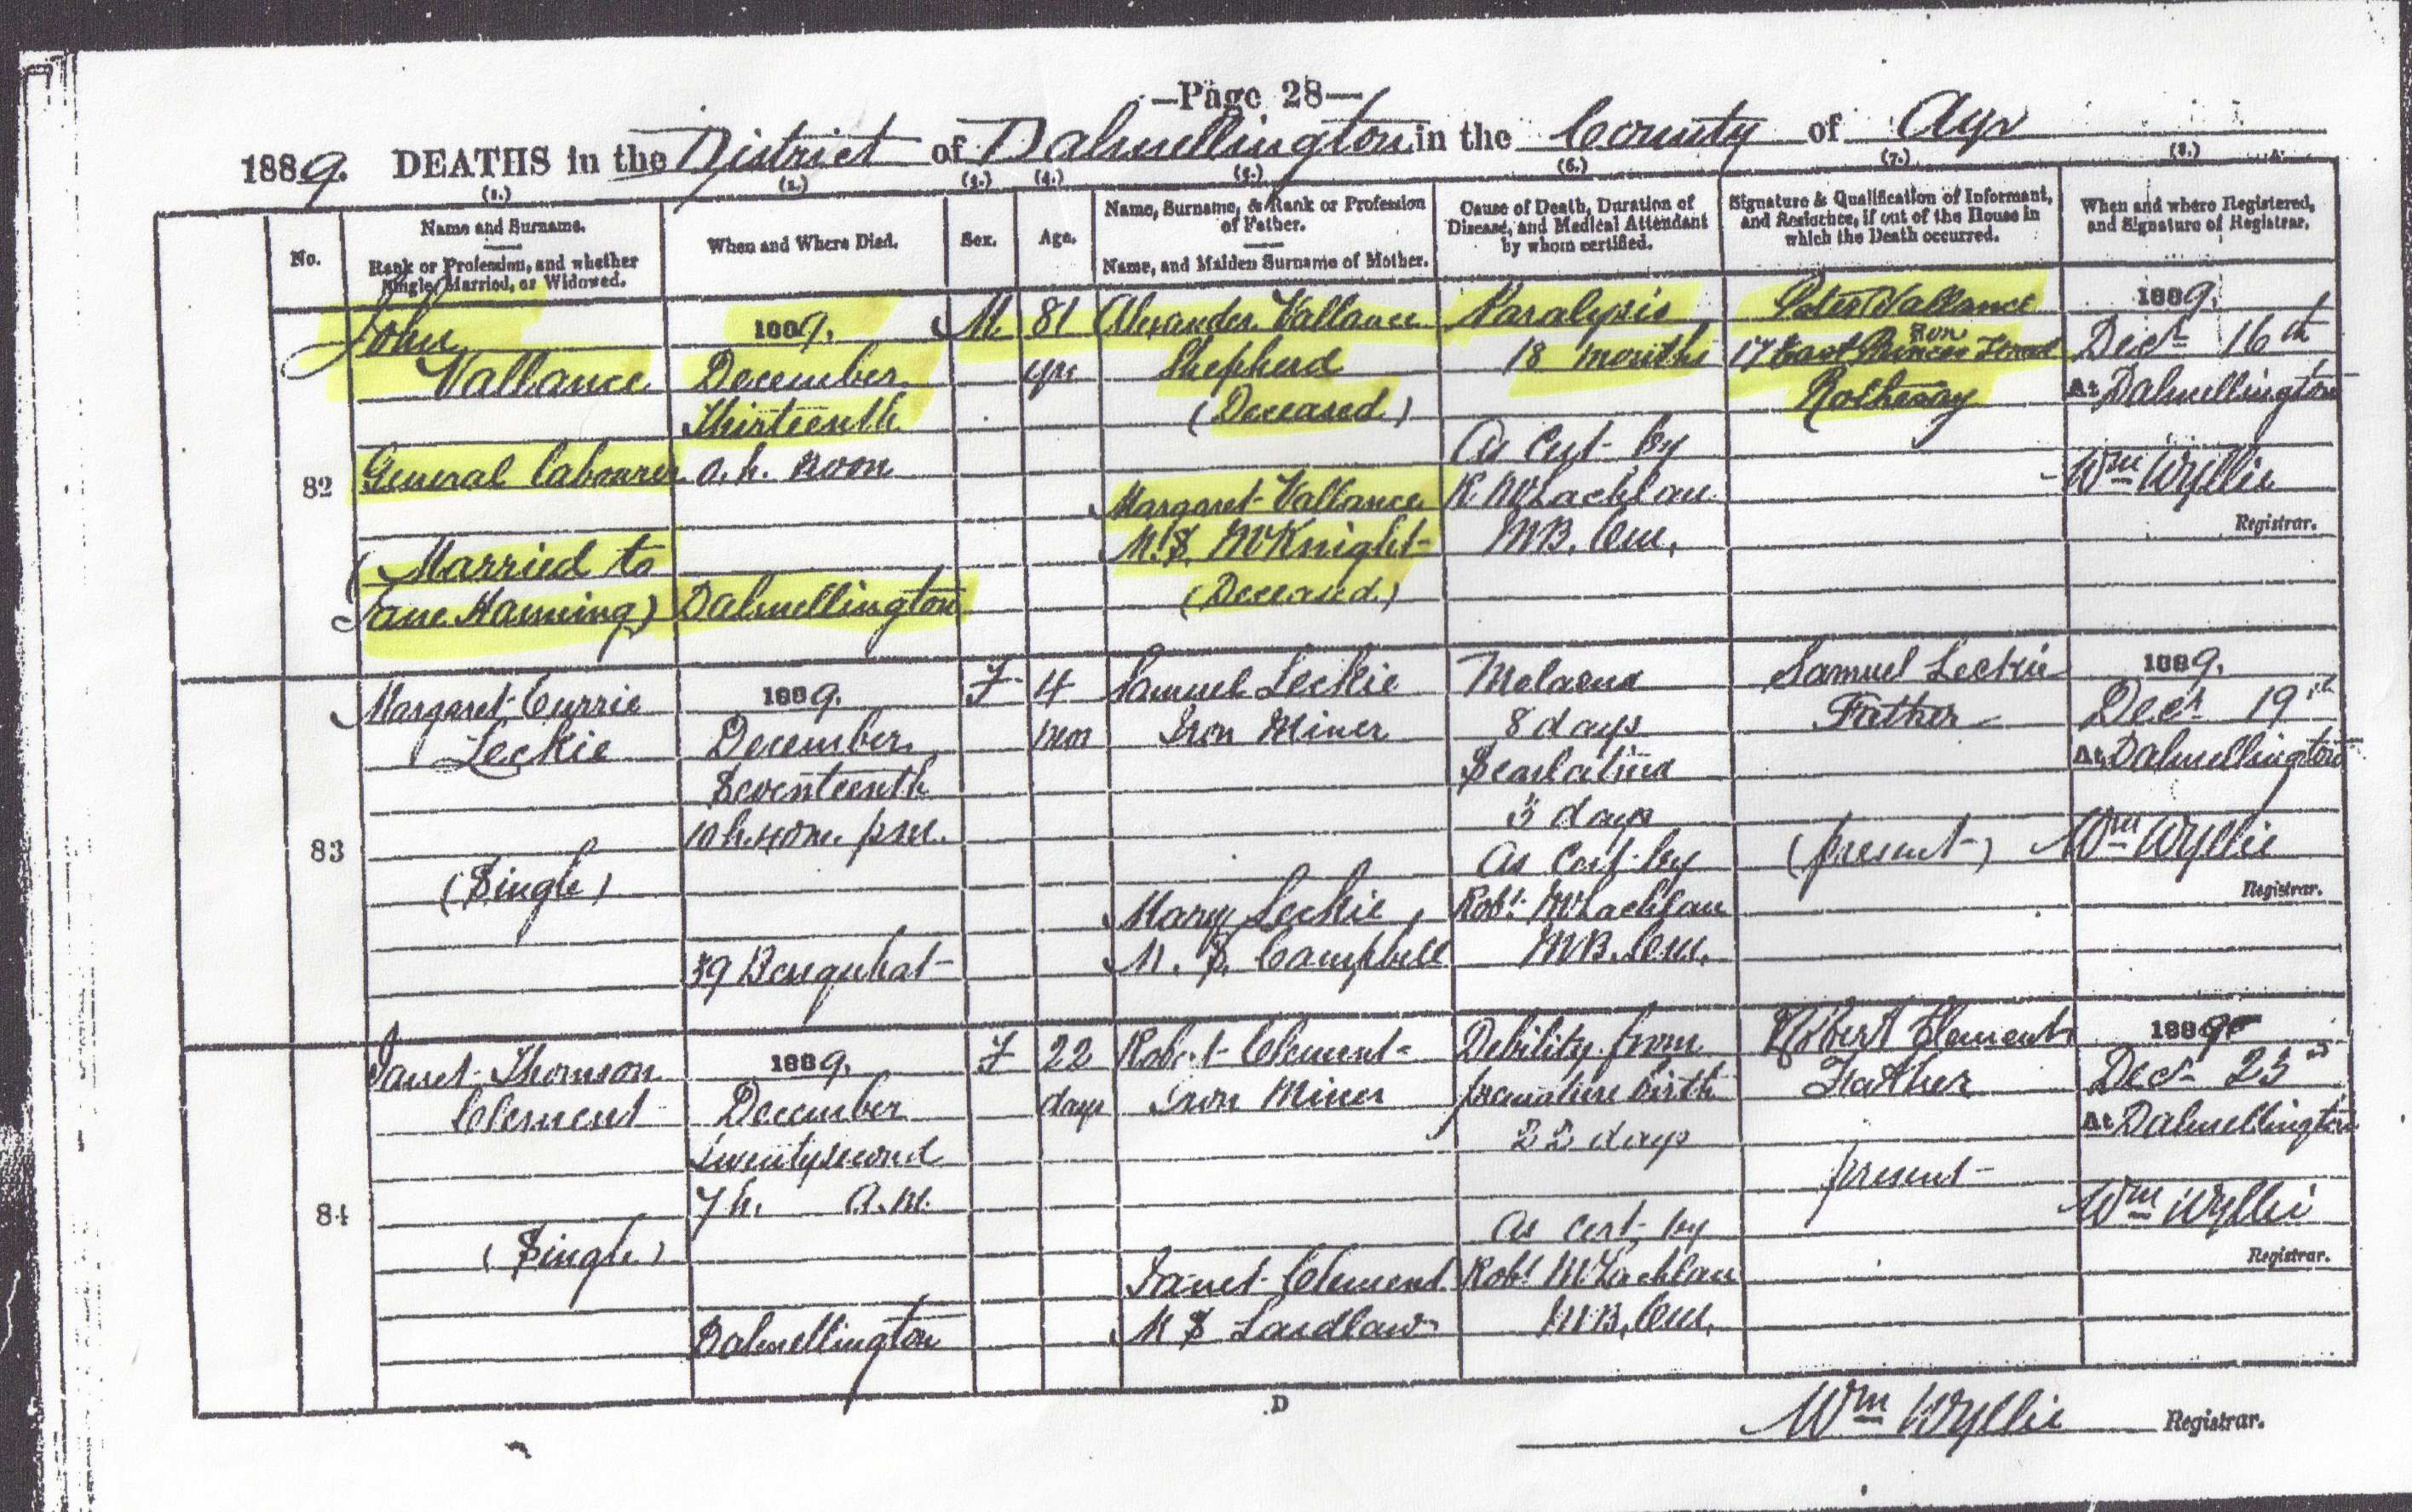 —Page 28—
1889. DEATHS in the District of Dalmellington in the County of Ayr
(1.) (2.) (3.) (4.) (5.) (6.) (7.) (8.)
No.
Name and Surname.
Rank or Profession, and whether
Single, Married, or Widowed.
When and Where Died.
Sex.
Age.
Name, Surname, & Rank or Profession
of Father.
Name, and Maiden Surname of Mother.
Cause of Death, Duration of
Disease, and Medical Attendant
by whom certified.
Signature & Qualification of Informant,
and Residence, if out of the House in
which the Death occurred.
When and where Registered,
and Signature of Registrar.
82
John
Vallance
General labourer
(Married to
Jane Hanning)
1889.
December
Thirteenth
0. h. noon
Dalmellington
M.
81
yrs
Alexander Vallance
Shepherd
(Deceased)
Margaret Vallance
M.S. McKnight
(Deceased)
Paralysis
18 months
As cert by
R. McLachlan
M.B. C.M.
Peter Vallance
Son
17 East Princes Street
Rothesay
1889.
Decr. 16th
At Dalmellington
Wm Wyllie
Registrar.
83
Margaret Currie
Leckie
(Single)
1889.
December
Seventeenth
10 h. 40 m. p.m.
59 Benquhat
F
4
mos
Samuel Leckie
Iron Miner
Mary Leckie
M. S. Campbell
Melaena
8 days
Scarlatina
3 days
As Cert. by
Robt. McLachlan
M.B. C.M.
Samuel Leckie
Father
(present)
1889.
Decr. 19th
At Dalmellington
Wm Wyllie
Registrar.
84
Janet Thomson
Clement
(Single)
1889.
December
Twentysecond
7 h. A.M.
Dalmellington
F
22
days
Robert Clement
Iron Miner
Janet Clement
M S Laidlaw
Debility from
premature birth
22 days
As cert. by
Robt McLachlan
M.B. C.M.
Robert Clement
Father
present
1889
Decr. 23rd
At Dalmellington
Wm Wyllie
Registrar.
D
Wm Wyllie Registrar.